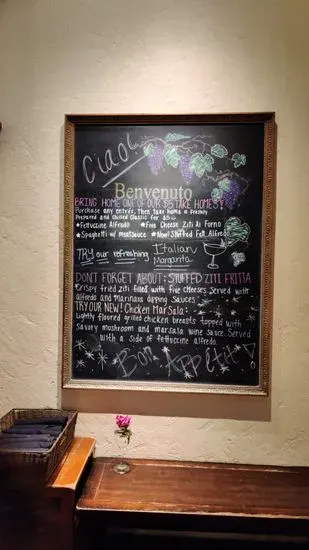 Ciao!
Benvenuto
BRING HOME ONE OF OUR $5 TAKE HOMES!
Purchase any entrée, Then Take home a freshly
Prepared and chilled Classic for $5
★Fettuccine Alfredo ★Five Cheese Ziti Al Forno
★Spaghetti w/ MeatSauce
TRY our refreshing Italian
Margarita
DON'T FORGET ABOUT: STUFFED ZITI FRITTA
Crispy fried ziti filled with five cheeses. Served with
alfredo and marinara dipping Sauces
TRY OUR NEW! Chicken MarSala:
Lightly floured grilled chicken breasts topped with
Savory mushroom and marsala wine sauce. Served
with a side of fettuccine alfredo.
Bon Appetit!